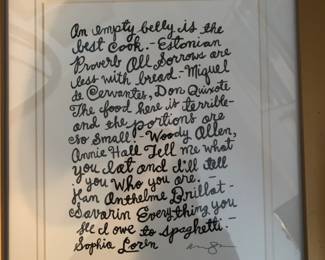 An empty belly is the
best Cook.- Estonian
Proverb All Sorrows are
less with bread.- Miguel
de Cervantes, Don Quixote
The food here is terrible-
and the portions are
so small!- Woody Allen,
Annie Hall Tell me what
you Eat and I'll tell
you Who you are. -
Jean Anthelme Brillat-
Savarin Everything you
see I owe to spaghetti.-
Sophia Loren